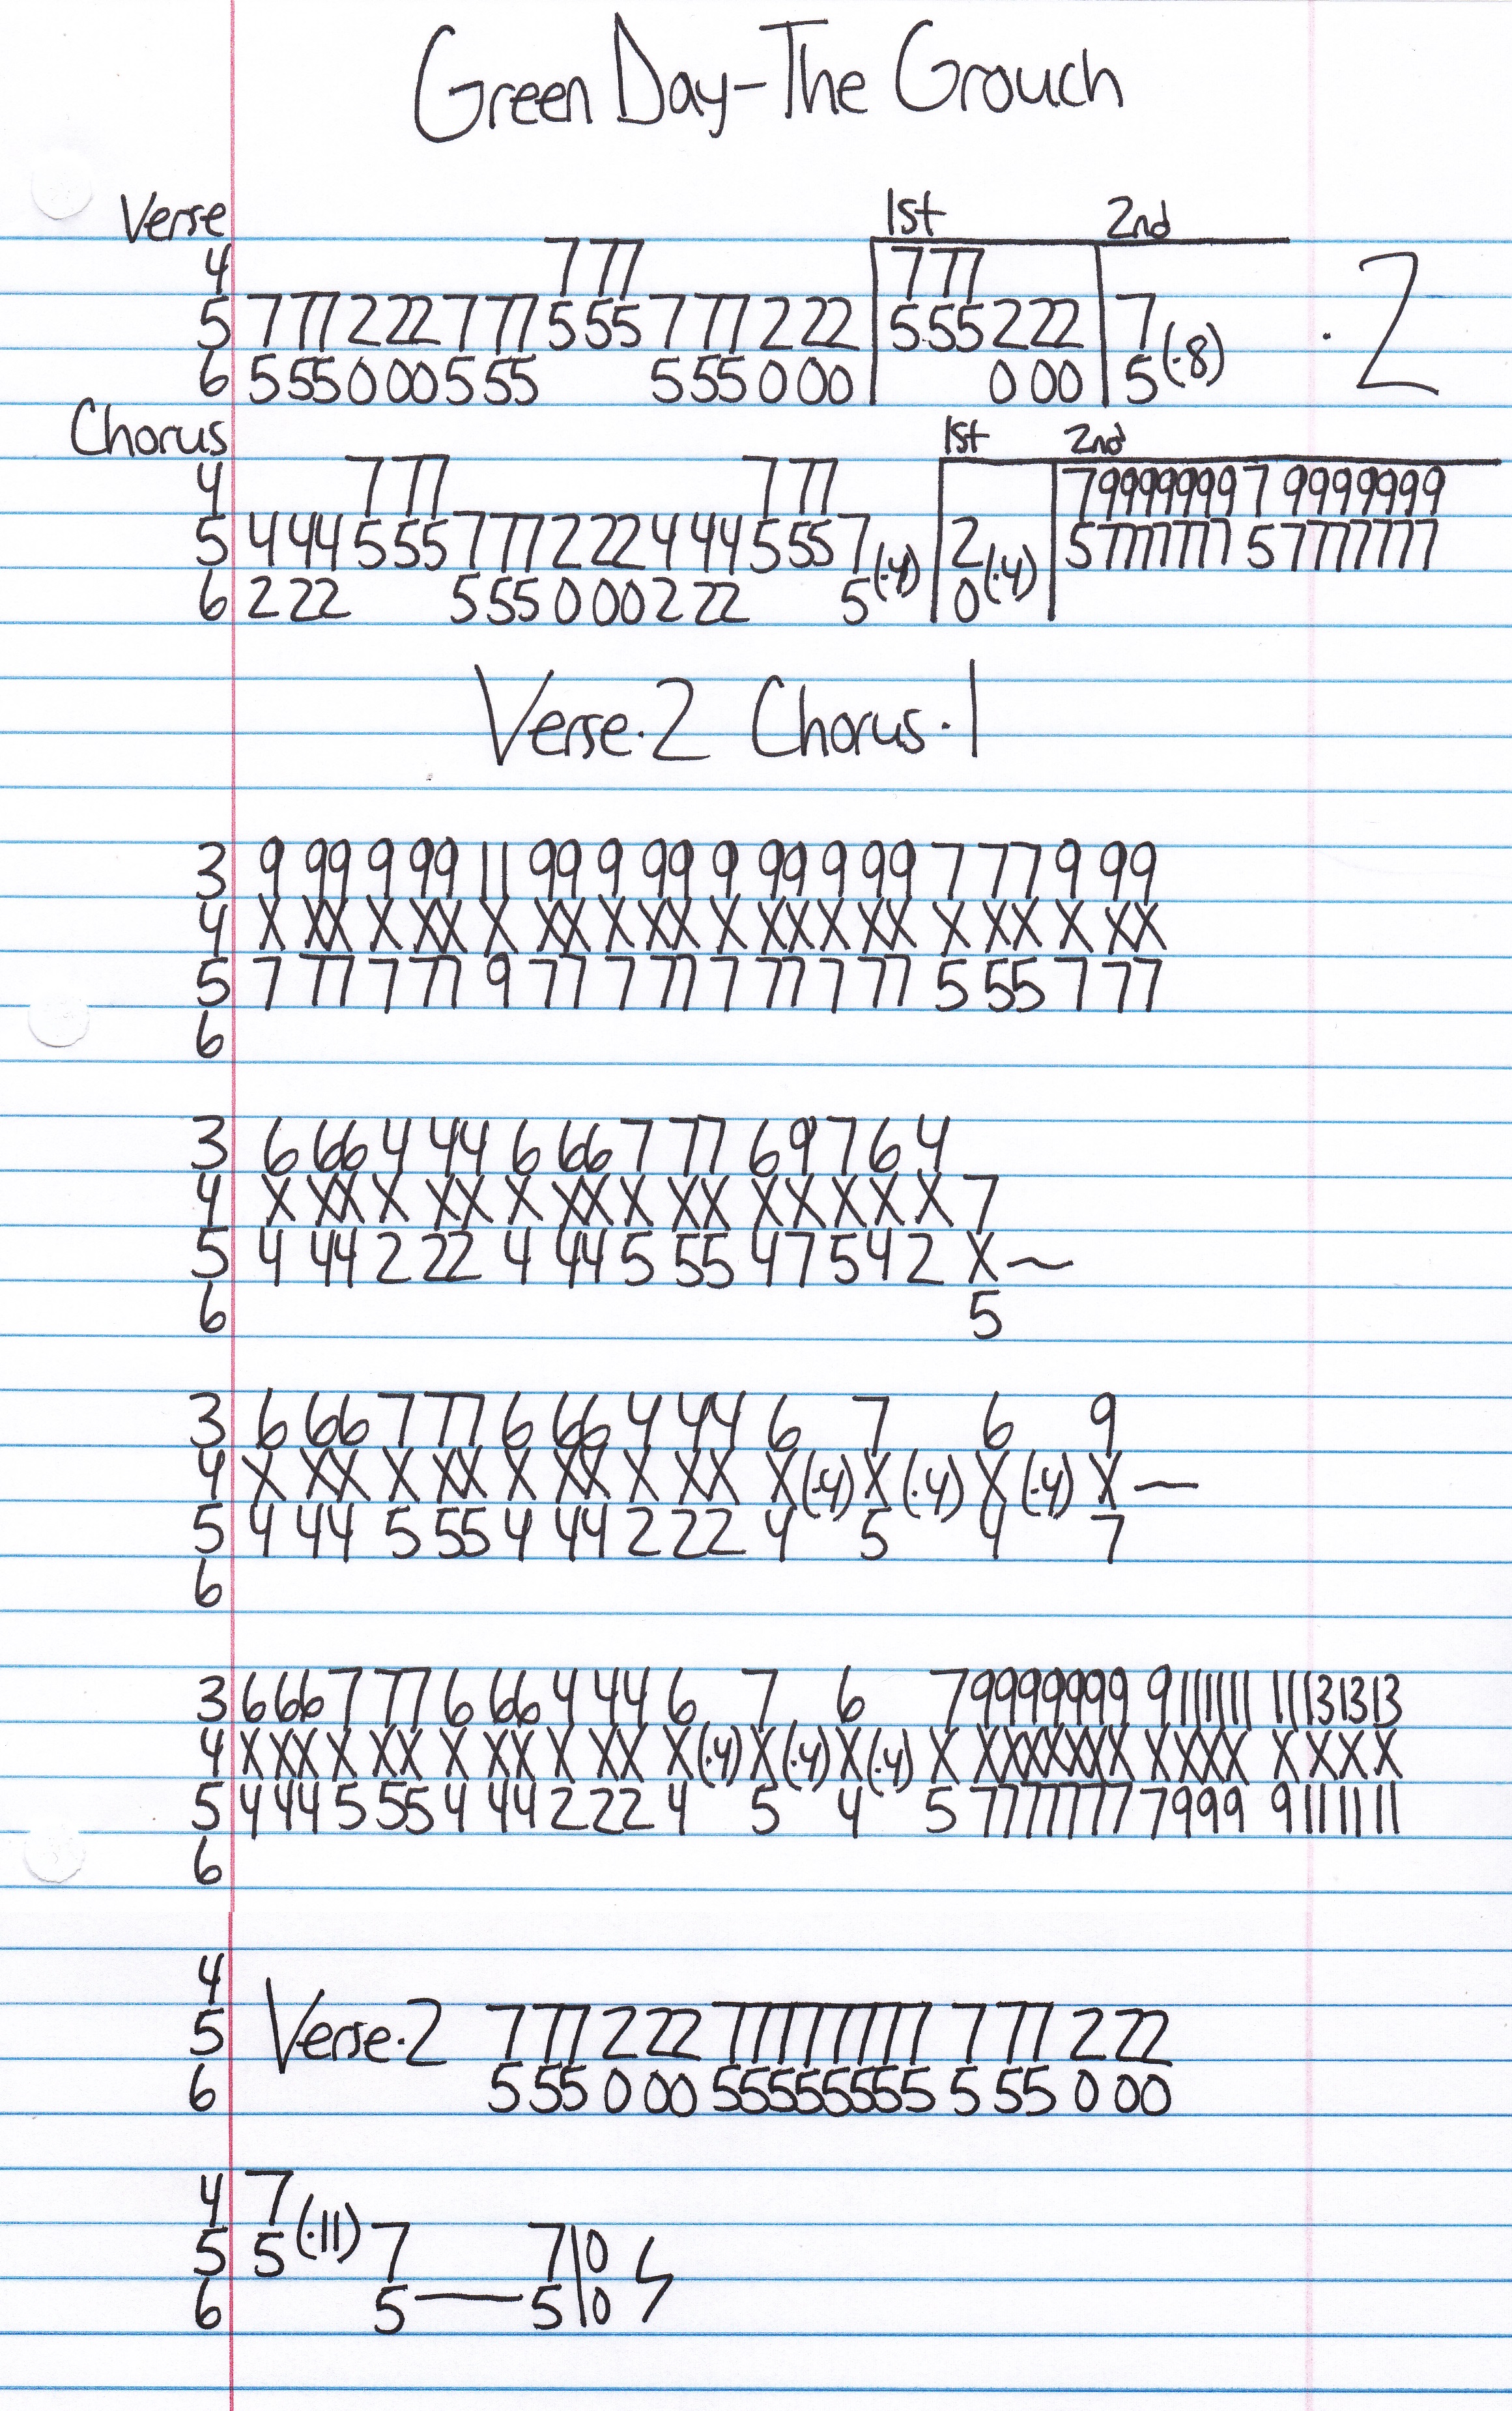 Green Day-The Grouch
Verse 1st 2nd
4 7 77 7 77
5 7 77 2 22 7 77 5 55 7 77 2 22 5 55 2 22 7 (·8) ·2
6 5 55 0 00 5 55 5 55 0 00 0 00 5
Chorus 1st 2nd
4 7 77 7 77 79999999 7 9999999
5 4 44 5 55 7 77 2 22 4 44 5 55 7 (·4) 2 (·4) 5777777 57777777
6 2 22 5 55 0 00 2 22 5 0
Verse·2 Chorus·1
3 9 99 9 99 11 99 9 99 9 99 9 99 7 77 9 99
4 X XX X XX X XX X XX X XX X XX X XX X XX
5 7 77 7 77 9 77 7 77 7 77 7 77 5 55 7 77
6
3 6 66 4 44 6 66 7 77 6 9 7 6 4
4 X XX X XX X XX X XX X X X X X 7
5 4 44 2 22 4 44 5 55 4 7 5 4 2 X ~
6 5
3 6 66 7 77 6 66 4 44 6 7 6 9
4 X XX X XX X XX X XX X (·4) X (·4) X (·4) X —
5 4 44 5 55 4 44 2 22 4 5 4 7
6
3 6 66 7 77 6 66 4 44 6 7 6 79999999 9111111 11131313
4 X XX X XX X XX X XX X (·4) X (·4) X (·4) X XXXXXXX XXXX XXXX
5 4 44 5 55 4 44 2 22 4 5 4 5 7777777 7999 9111111
6
4
5 Verse·2 7 77 2 22 77777777 7 77 2 22
6 5 55 0 00 55555555 5 55 0 00
4 7
5 5 (·11) 7 7\0
6 5 — 5\0